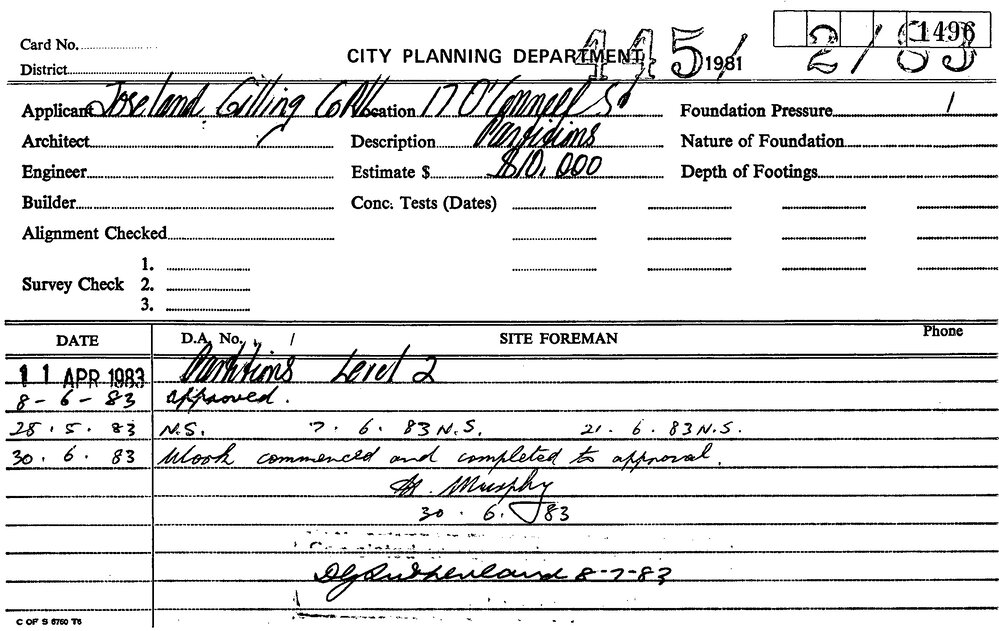 Card No. 1496
CITY PLANNING DEPARTMENT 445/1981 2/83
District
Applicant Joseland Gilling Location 17 O'Connell St Foundation Pressure
Architect Description Partitions Nature of Foundation
Engineer Estimate $ $10,000 Depth of Footings
Builder Conc. Tests (Dates)
Alignment Checked
1.
Survey Check 2.
3.
DATE D.A. No. SITE FOREMAN Phone
11 APR 1983 Partitions Level 2
8-6-83 approved.
28.5.83 N.S. 7.6.83 N.S. 21.6.83 N.S.
30.6.83 Work commenced and completed to approval.
Murphy
30.6.83
Completed
DG Sutherland 8-7-83
C OF S 6760 T6